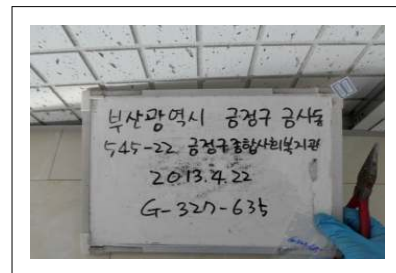 부산광역시 금정구 금사동
545-22 금정구종합사회복지관
2013.4.22
G-327-635